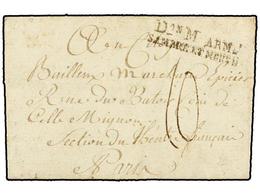 Don M ARMée
SAMBRE ET MEUSE
Au Cit
Bailleux Marchand Epicier
Rue du Batoir Coin de
Celle Mignon
Section du théatre français
A Paris